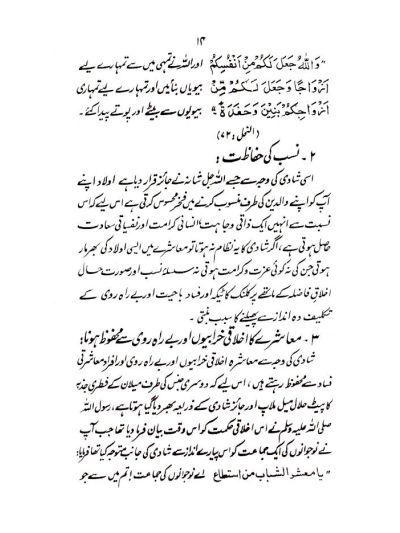 ۱۴
"وَاللّٰهُ جَعَلَ لَكُمْ مِنْ اَنْفُسِكُمْ اور اللہ نے تمہی میں سے تمہارے لیے
اَزْوَاجًا وَجَعَلَ لَكُمْ مِّنْ بیویاں بنائیں اور تمہارے لیے تمہاری
اَزْوَاجِكُمْ بَنِيْنَ وَحَفَدَةً" بیویوں سے بیٹے اور پوتے پیدا کئے۔
(النحل : ۷۲)
۲ ۔ نسب کی حفاظت :
اسی شادی کی وجہ سے جسے اللہ جل شانہ نے جائز قرار دیا ہے اولاد اپنے
آپ کو اپنے والدین کی طرف منسوب کرنے میں فخر محسوس کرتی ہے اس لیے کہ اس
نسبت سے انہیں ایک ذاتی وجاہت، انسانی کرامت اور نفسیاتی سعادت
حاصل ہوتی ہے، اگر شادی کا یہ نظام نہ ہوتا تو معاشرے میں ایسی اولاد کی بھرمار
ہوتی جن کی نہ کوئی عزت و کرامت ہوتی نہ سلسلۂ نسب اور صورت حال
اخلاق فاضلہ کے ماتھے پر کلنک کا ٹیکہ اور فساد و اباحیت اور بے راہ روی کے
تکلیف دہ انداز سے پھیلنے کا سبب بنتی ۔
۳ ۔ معاشرے کا اخلاقی خرابیوں اور بے راہ روی سے محفوظ ہونا:
شادی کی وجہ سے معاشرہ اخلاقی خرابیوں اور بے راہ روی اور افراد معاشرتی
فساد سے محفوظ رہتے ہیں، اس لیے کہ دوسری جنس کی طرف میلان کے فطری جذبہ
کا پیٹ حلال میل ملاپ اور جائز شادی کے ذریعہ بھر دیا گیا ہوتا ہے، رسول اللہ
صلی اللہ علیہ وسلم نے اس اخلاقی حکمت کو اس وقت بیان فرما دیا تھا جب آپ
نے نوجوانوں کی ایک جماعت کو اس پیارے انداز سے شادی کی جانب متوجہ کیا تھا فرمایا:
"یا معشر الشباب من استطاع اے نوجوانوں کی جماعت تم میں سے جو